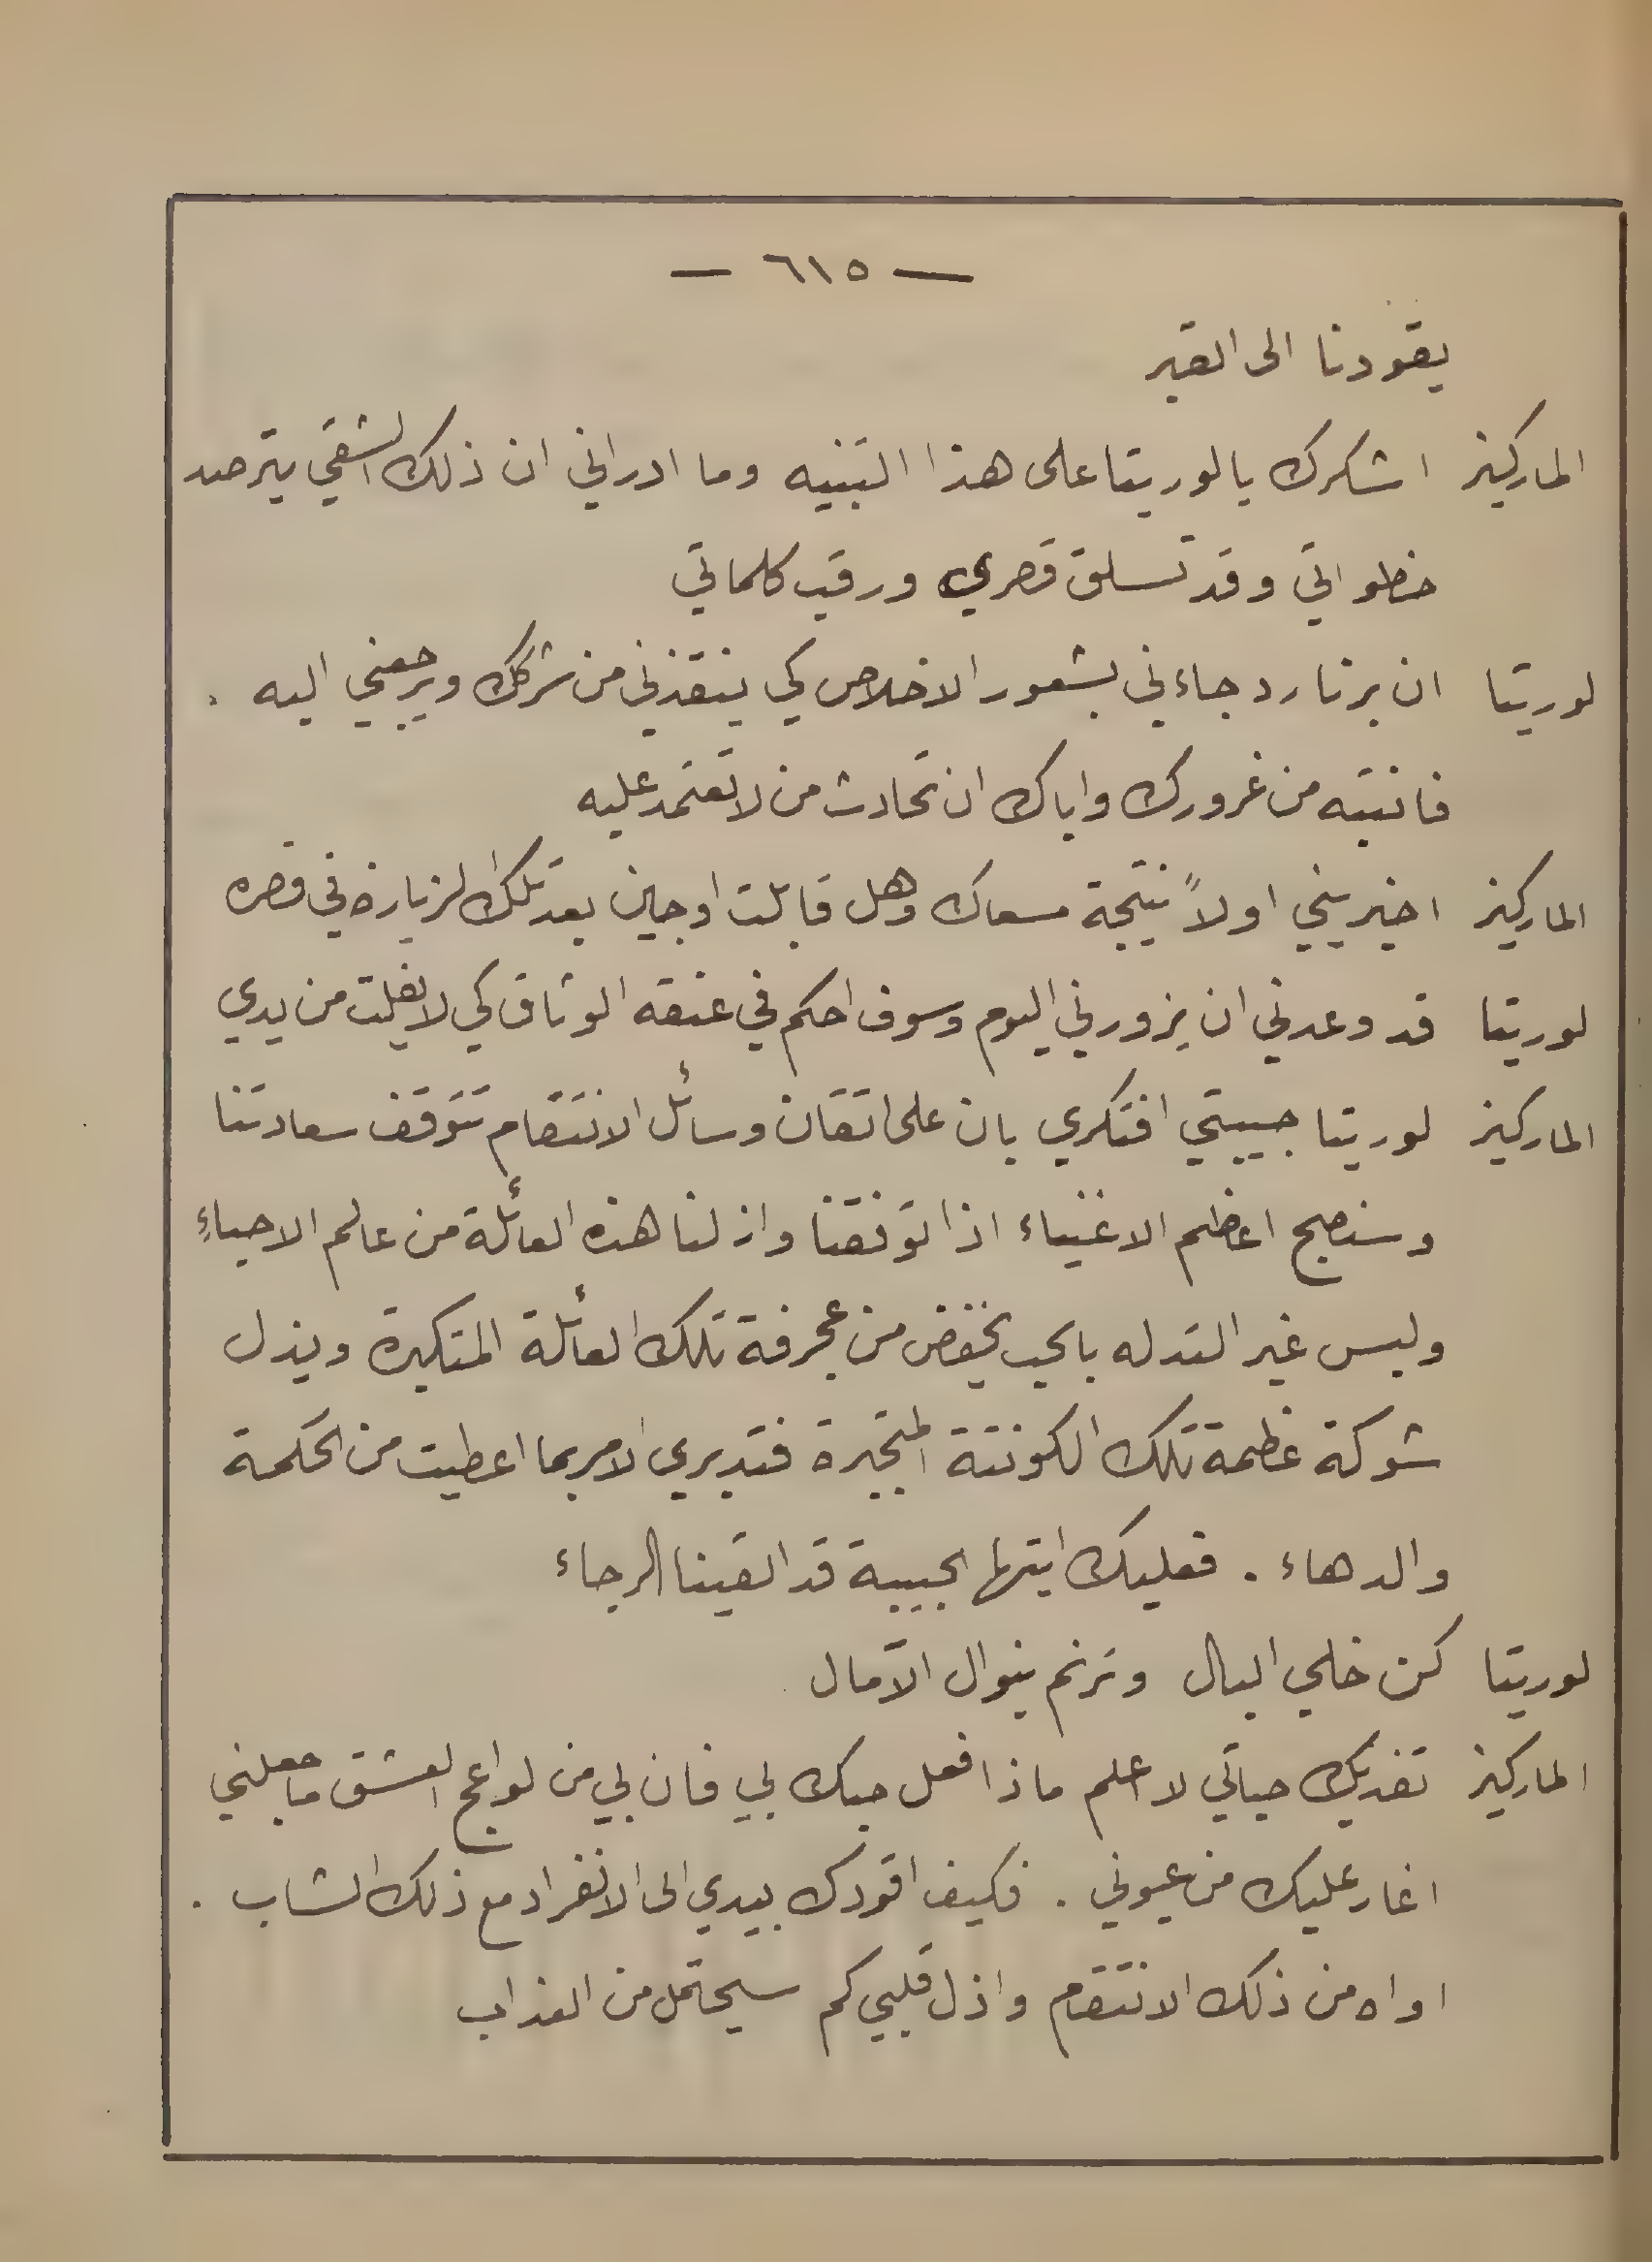 — ٦١٥ —
يقودنا الى القبر
الماركيز اشكرك يالوريتا على هذا التنبيه وما ادراني ان ذلك الشقي يترصد
خطواتي وقد تسلق قصري ورقب كلماتي
لوريتا ان برنارد جاءني بشعور الاخلاص كي ينقذني من شركك ويرجعني اليه .
فانتبه من غرورك واياك ان تحادث من لا تعتمد عليه
الماركيز اخبريني اولاً نتيجة مسعاك وهل قابلت اوجين بعد تلك الزيارة في قصره
لوريتا قد وعدني ان يزورني اليوم وسوف احكم في عنقه الوثاق كي لا يفلت من يدي
الماركيز لوريتا حبيبتي افتكري بان على اتقان وسائل الانتقام تتوقف سعادتنا
وسنصبح اعظم الاغنياء اذا توفقنا وازلنا هذه العائلة من عالم الاحياءِ
وليس غير التدله بالحب يخفض من عجرفة تلك العائلة المتكبرة ويذل
شوكة عظمة تلك الكونتة المتجبرة فتدبري الامر بما اعطيت من الحكمة
والدهاء . فعليك ايتها الحبيبة قد القينا الرجاء
لوريتا كن خلي البال وترنم بنوال الآمال
الماركيز تفديك حياتي لا اعلم ماذا فعل حبك بي فان بي من لواعج العشق ما جعلني
اغار عليك من عيوني . فكيف اقودك بيدي الى الانفراد مع ذلك الشاب .
اواه من ذلك الانتقام واذل قلبي كم سيحتمل من العذاب